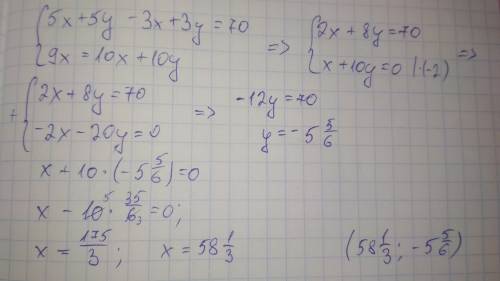 { 5x+5y -3x+3y=70
9x=10x+10y => { 2x+8y=70
x+10y=0 |·(-2) =>
+ { 2x+8y=70
-2x-20y=0 => -12y=70
y=-5 5/6
x+10·(-5 5/6)=0
x - 10⁵ · 35/6₃ =0;
x = 175/3 ; x = 58 1/3 (58 1/3 ; -5 5/6)